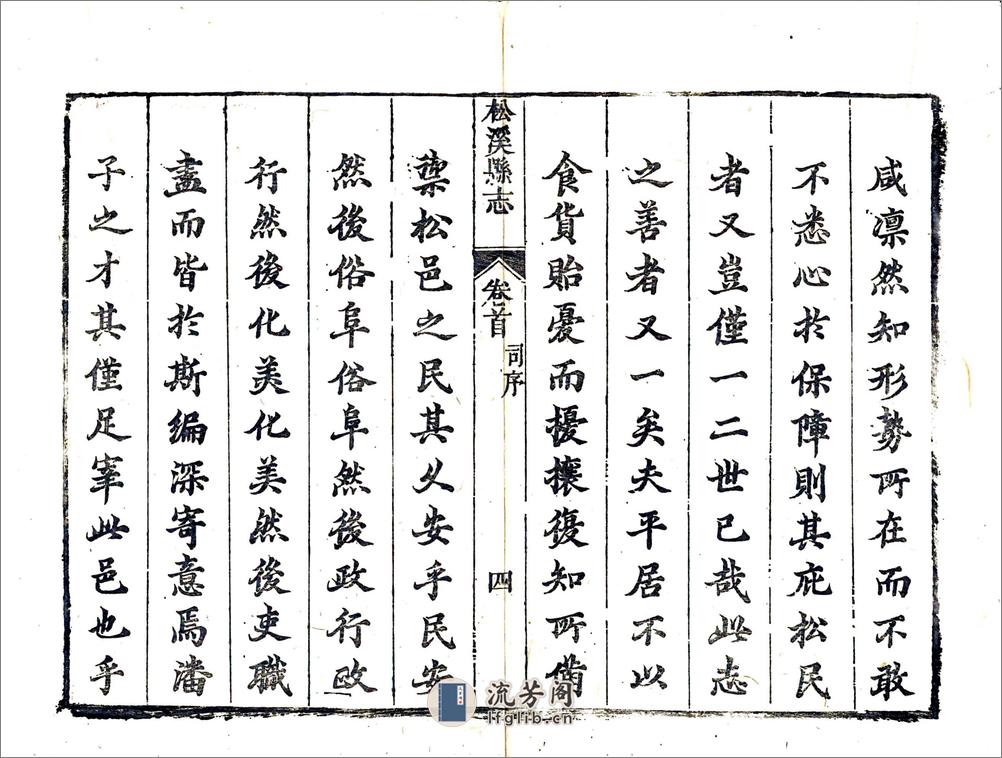 咸凛然知形勢所在而不敢
不悉心於保障則其庇松民
者又豈僅一二世已哉此志
之善者又一矣夫平居不以
食貨貽憂而擾攘復知所備
松溪縣志 卷首 司序 四
禦松邑之民其乂安乎民安
然後俗阜俗阜然後政行政
行然後化美化美然後吏職
盡而皆於斯編深寄意焉潘
子之才其僅足宰此邑也乎
流芳阁
lfglib.cn